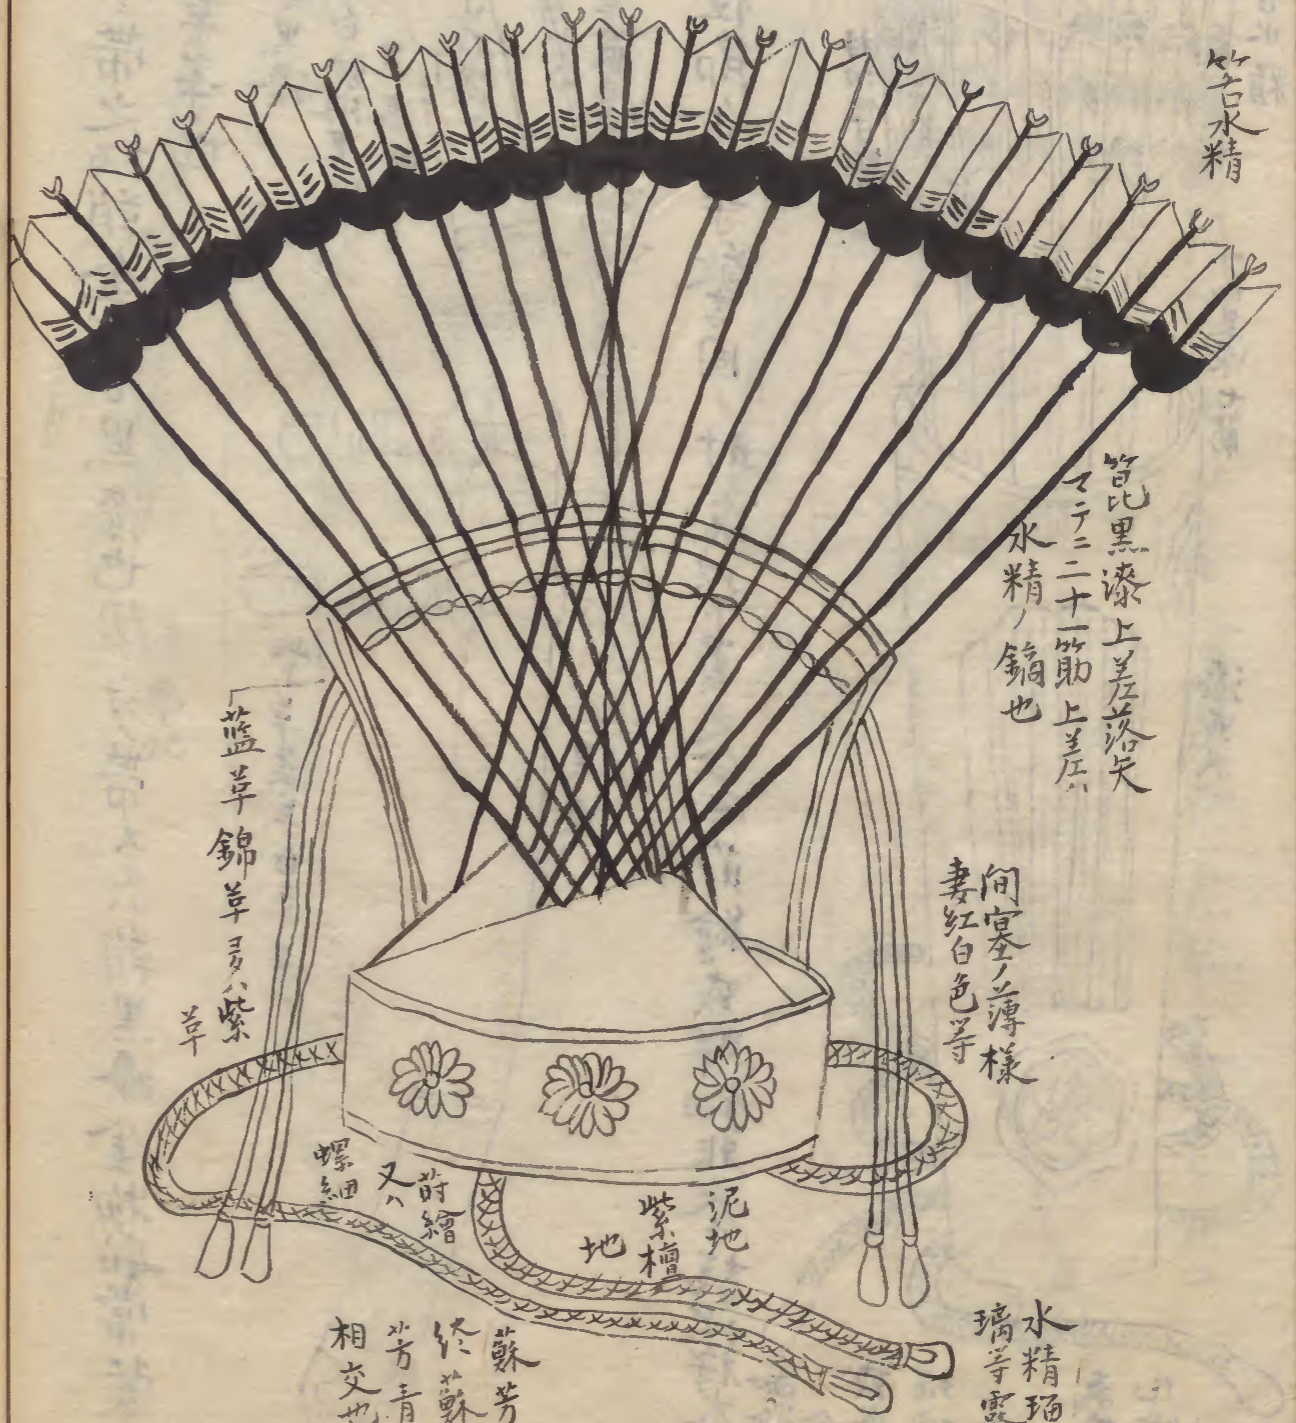 筈水精
箆黒漆上差落矢
マテニ二十一筋上差ハ
水精ノ鏑也
間塞ノ薄様
妻紅白色等
藍革錦革又ハ紫
革
泥地
紫檀
地
蒔繪
又ハ
螺鈿
水精瑠
璃等露
蘇芳
終蘇
芳青
相交也